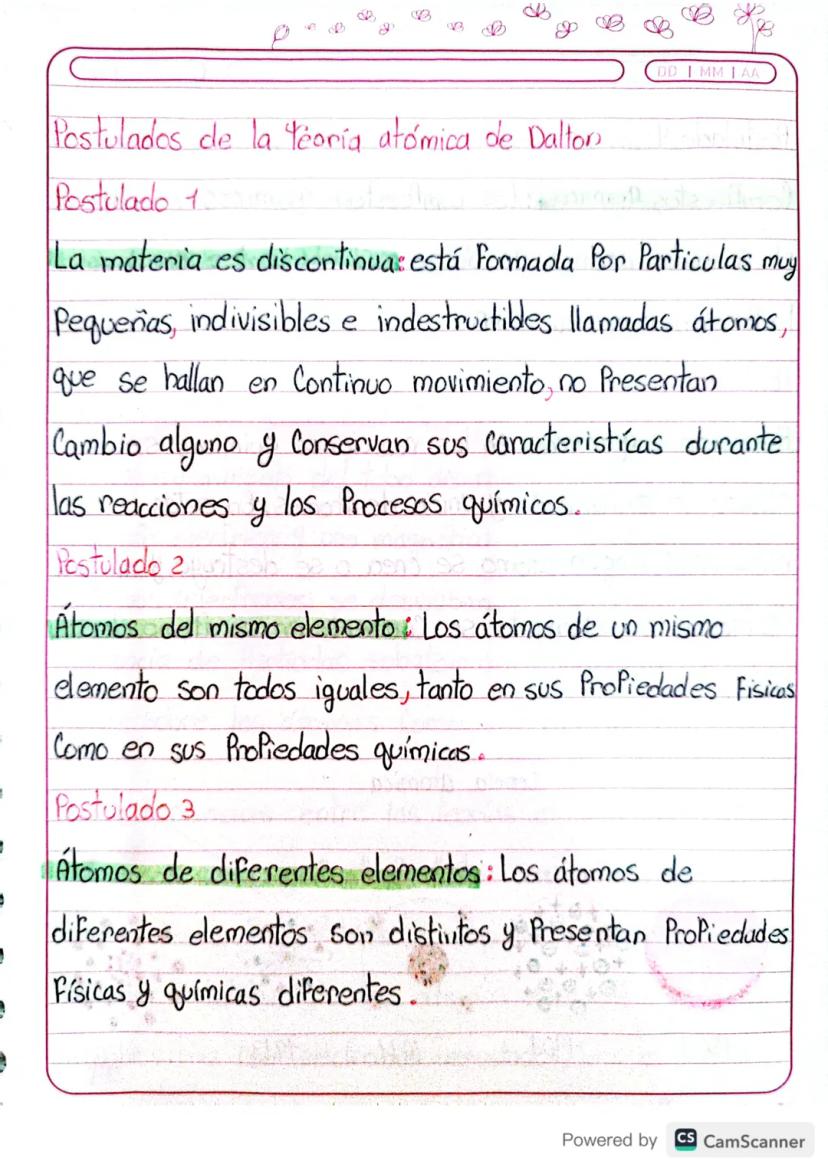 DD | MM | AA
Postulados de la teoría atómica de Dalton
Postulado 1
La materia es discontinua: está Formada Por Particulas muy
Pequeñas, indivisibles e indestructibles llamadas átomos,
que se hallan en Continuo movimiento, no Presentan
Cambio alguno y Conservan sus Caracteristícas durante
las reacciones y los Procesos químicos.
Postulado 2
Átomos del mismo elemento: Los átomos de un mismo
elemento son todos iguales, tanto en sus ProPiedades Fisicas
Como en sus ProPiedades químicas.
Postulado 3
Átomos de diFerentes elementos: Los átomos de
diFerentes elementos son distintos y Presentan ProPiedades
Físicas y químicas diFerentes.
Powered by CS CamScanner